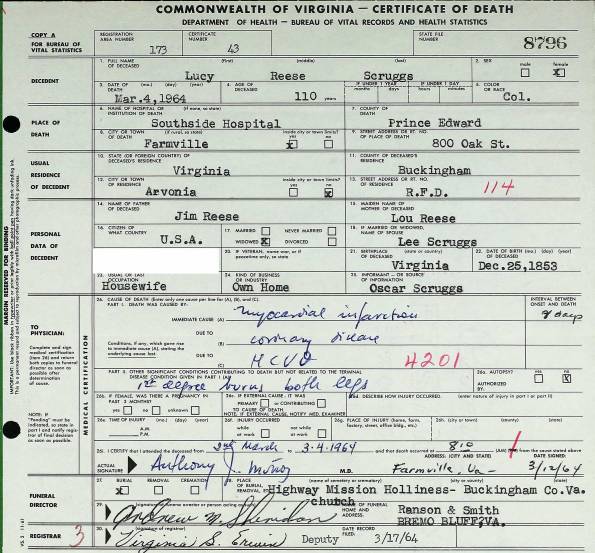 COMMONWEALTH OF VIRGINIA — CERTIFICATE OF DEATH
DEPARTMENT OF HEALTH — BUREAU OF VITAL RECORDS AND HEALTH STATISTICS
COPY A
FOR BUREAU OF
VITAL STATISTICS
REGISTRATION
AREA NUMBER 173
CERTIFICATE
NUMBER 43
STATE FILE
NUMBER 8796
DECEDENT
1. FULL NAME OF DECEASED (First) (middle) (last)
Lucy Reese Scruggs
2. SEX male female X
3. DATE OF DEATH (mo.) (day) (year)
Mar.4,1964
4. AGE OF DECEASED 110 years
IF UNDER 1 YEAR months days
IF UNDER 1 DAY hours minutes
5. COLOR OR RACE Col.
PLACE OF DEATH
6. NAME OF HOSPITAL OR INSTITUTION OF DEATH (if none, so state)
Southside Hospital
7. COUNTY OF DEATH
Prince Edward
8. CITY OR TOWN OF DEATH (if rural, so state)
Farmville
inside city or town limits? yes X no
9. STREET ADDRESS OR RT. NO. OF PLACE OF DEATH
800 Oak St.
USUAL RESIDENCE OF DECEDENT
10. STATE (OR FOREIGN COUNTRY) OF DECEASED'S RESIDENCE
Virginia
11. COUNTY OF DECEASED'S RESIDENCE
Buckingham
12. CITY OR TOWN OF RESIDENCE
Arvonia
inside city or town limits? yes no X
13. STREET ADDRESS OR RT. NO. OF RESIDENCE
R.F.D. 114
PERSONAL DATA OF DECEDENT
14. NAME OF FATHER OF DECEASED
Jim Reese
15. MAIDEN NAME OF MOTHER OF DECEASED
Lou Reese
16. CITIZEN OF WHAT COUNTRY
U.S.A.
17. MARRIED NEVER MARRIED
WIDOWED X DIVORCED
18. IF MARRIED OR WIDOWED, NAME OF SPOUSE
Lee Scruggs
20. IF VETERAN, name war, or if peacetime only, so state
21. BIRTHPLACE OF DECEASED
Virginia
22. DATE OF BIRTH (mo.) (day) (year)
Dec.25,1853
23. USUAL OR LAST OCCUPATION
Housewife
24. KIND OF BUSINESS OR INDUSTRY
Own Home
25. INFORMANT - OR SOURCE OF INFORMATION
Oscar Scruggs
MARGIN RESERVED FOR BINDING
TO PHYSICIAN:
Complete and sign medical certification (item 26) and return both copies to funeral director as soon as possible after determination of cause.
NOTE: If "Pending" must be indicated, so state in part I and notify registrar of final decision as soon as possible.
MEDICAL CERTIFICATION
26. CAUSE OF DEATH (Enter only one cause per line for (A), (B), and (C).)
PART I. DEATH WAS CAUSED BY:
INTERVAL BETWEEN ONSET AND DEATH
IMMEDIATE CAUSE (A) myocardial infarction days
Conditions, if any, which gave rise to immediate cause (A), stating the underlying cause last
DUE TO (B) coronary disease
DUE TO (C) HCVD 4201
PART II. OTHER SIGNIFICANT CONDITIONS CONTRIBUTING TO DEATH BUT NOT RELATED TO THE TERMINAL DISEASE CONDITION GIVEN IN PART I (A)
1st degree burns both legs
26a. AUTOPSY? yes no X
AUTHORIZED BY:
26b. IF FEMALE, WAS THERE A PREGNANCY IN PAST 3 MONTHS?
yes no unknown
26c. IF EXTERNAL CAUSE, IT WAS
PRIMARY or CONTRIBUTING TO CAUSE OF DEATH
NOTE: IF EXTERNAL CAUSE, NOTIFY MED. EXAMINER
26d. DESCRIBE HOW INJURY OCCURRED. (enter nature of injury in part I or part II)
26e. TIME OF INJURY (mo.) (day) (year)
A.M.
P.M.
26f. INJURY OCCURRED
while at work not while at work
26g. PLACE OF INJURY (home, farm, factory, street, office bldg., etc.)
26h. (city or town) (county) (state)
26i. I CERTIFY that I attended the deceased from 2nd March 3-4-1964 and that death occurred at 810 (AM) from the cause stated above
ACTUAL SIGNATURE Anthony J. Munoz M.D.
ADDRESS: (CITY AND STATE) Farmville, Va-
DATE SIGNED: 3/12/64
FUNERAL DIRECTOR
27. BURIAL X REMOVAL CREMATION
28. PLACE OF BURIAL, REMOVAL, ETC.
Highway Mission Holliness- Buckingham Co.Va.
church
29. (signature of funeral director or person acting as such)
Andrew N. Sheridan
NAME OF FUNERAL HOME AND ADDRESS
Ranson & Smith
BREMO BLUFF,VA.
REGISTRAR 3
30. Virginia S. Erwin Deputy
DATE RECORD FILED 3/17/64